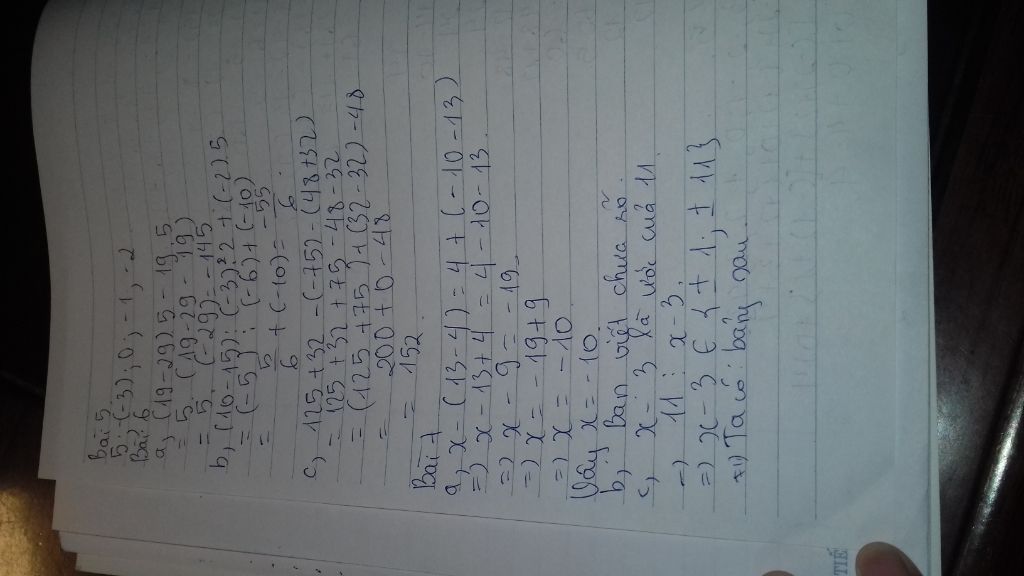 Bài 5
5; (-3); 0; -1; -2
Bài 6
a, (19-29) 5 - 19.5
= 5 (19-29 - 19)
= 5 (-29) = -145
b, (10-15) : (-3)².2 + (-2).5
= (-5) : (-6) + (-10)
= 5/6 + (-10) = -55/6
c, 125 + 32 - (-75) - (48+32)
= 125 + 32 + 75 - 48 - 32
= (125 + 75) + (32 - 32) - 48
= 200 + 0 - 48
= 152
Bài 7
a, x - (13 - 4) = 4 + (-10 - 13)
=) x - 13 + 4 = 4 - 10 - 13
=) x - 9 = -19
=) x = -19 + 9
=) x = -10
Vậy x = -10
b, Bạn viết chưa rõ.
c, x - 3 là ước của 11
=) 11 ⋮ x - 3
=) x - 3 ∈ { ± 1; ± 11 }
Ta có: bảng sau.
TIẾ